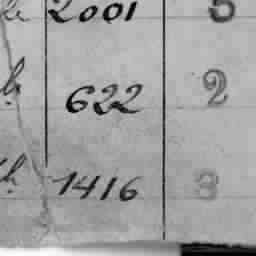 2001 5
622 2
1416 3